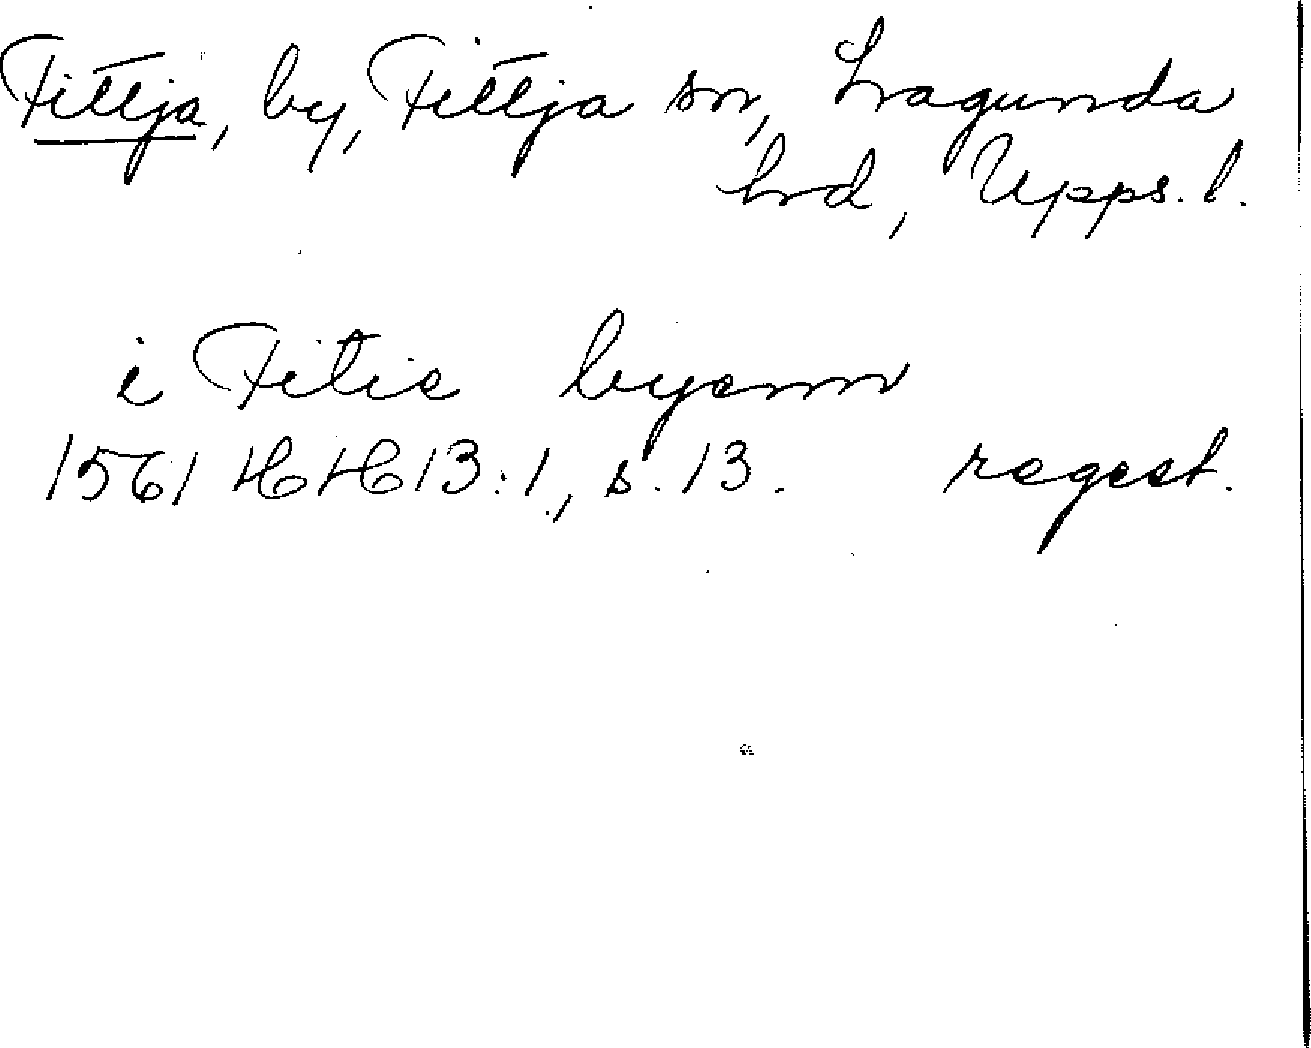 Fittja, by, Fittja sn, Lagunda
hrd, Upps. l.
i Fitie byenn
1561 HH 13:1, s. 13. regest.